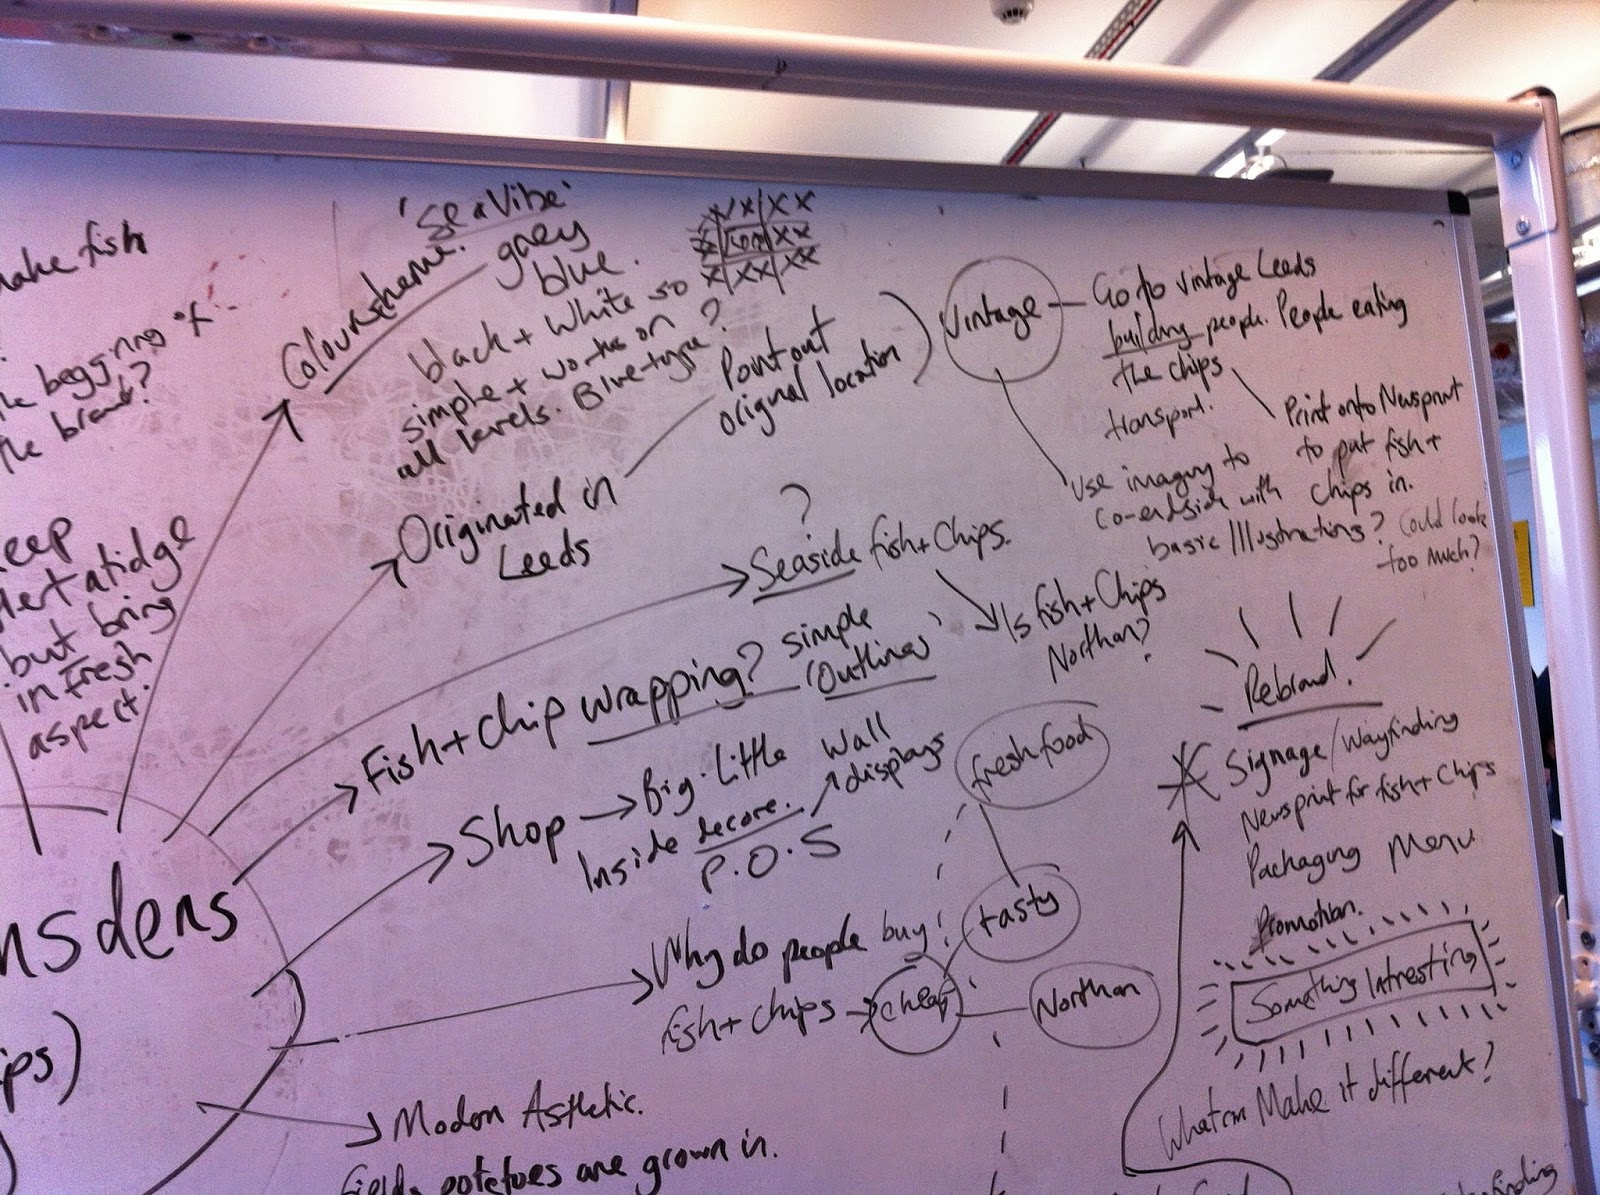 make fish
the beggining of
the brand?
keep
but bring
in fresh
aspect.
nsdens
ips)
Colourscheme.
'Sea Vibe'
grey
blue.
black + white so
simple + works on
all levels. Blue type?
Originated in
Leeds
Point out
original location
Vintage
Go to vintage Leeds
building people. People eating
the chips
transport.
Print onto Newsprint
to put fish +
chips in.
Use imagery to
co-endside with
basic Illustrations? Could look
too much?
?
Seaside fish + Chips.
Is fish + Chips
Northan?
Fish + Chip wrapping? simple
'Outlines'
Shop
Big. Little wall
displays
Inside decore.
P.O.S
Why do people buy
fish + chips
cheap
tasty
fresh food
Northan
Modern Asthetic.
Fields potetoes are grown in.
Rebrand.
Signage / Wayfinding
Newsprint for fish + Chips
Packaging Menu
Promotion.
Something Intresting
What can Make it different?